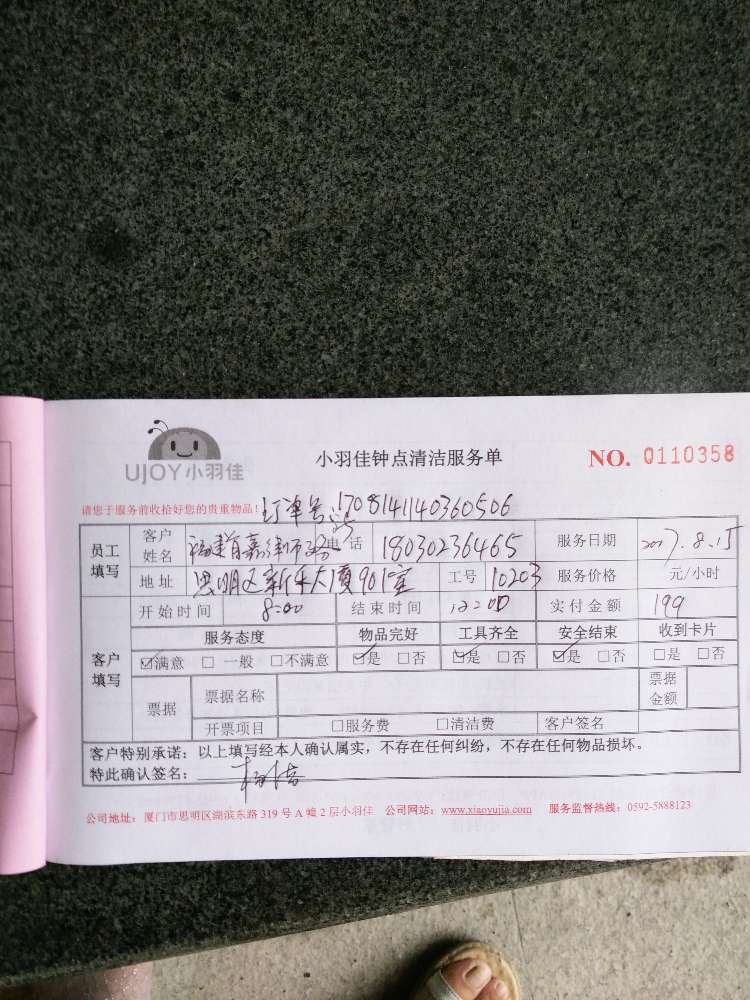 UJOY小羽佳
小羽佳钟点清洁服务单
NO. 0110358
请您于服务前收拾好您的贵重物品!
订单号 1708141140360506
员工填写 客户姓名 福建省嘉 电话 18030236465 服务日期 2017.8.15
地址 思明区新 大厦901室 工号 10203 服务价格 元/小时
客户填写 开始时间 8:00 结束时间 12:00 实付金额 199
服务态度 物品完好 工具齐全 安全结束 收到卡片
☑满意 □ 一般 □不满意 ☑是 □否 ☑是 □否 ☑是 □否 □是 □否
票据 票据名称 票据金额
开票项目 □服务费 □清洁费 客户签名
客户特别承诺：以上填写经本人确认属实，不存在任何纠纷，不存在任何物品损坏。
特此确认签名：
公司地址：厦门市思明区湖滨东路 319 号 A 幢 2 层小羽佳 公司网站：www.xiaoyujia.com 服务监督热线：0592-5888123